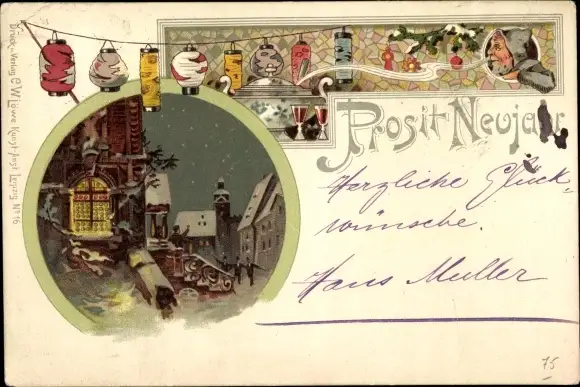 Prosit Neujahr
Herzliche Glück-
wünsche.
Hans Müller
75
Druck u. Verlag C. W. Löwe Kunst-Anst. Leipzig No 16